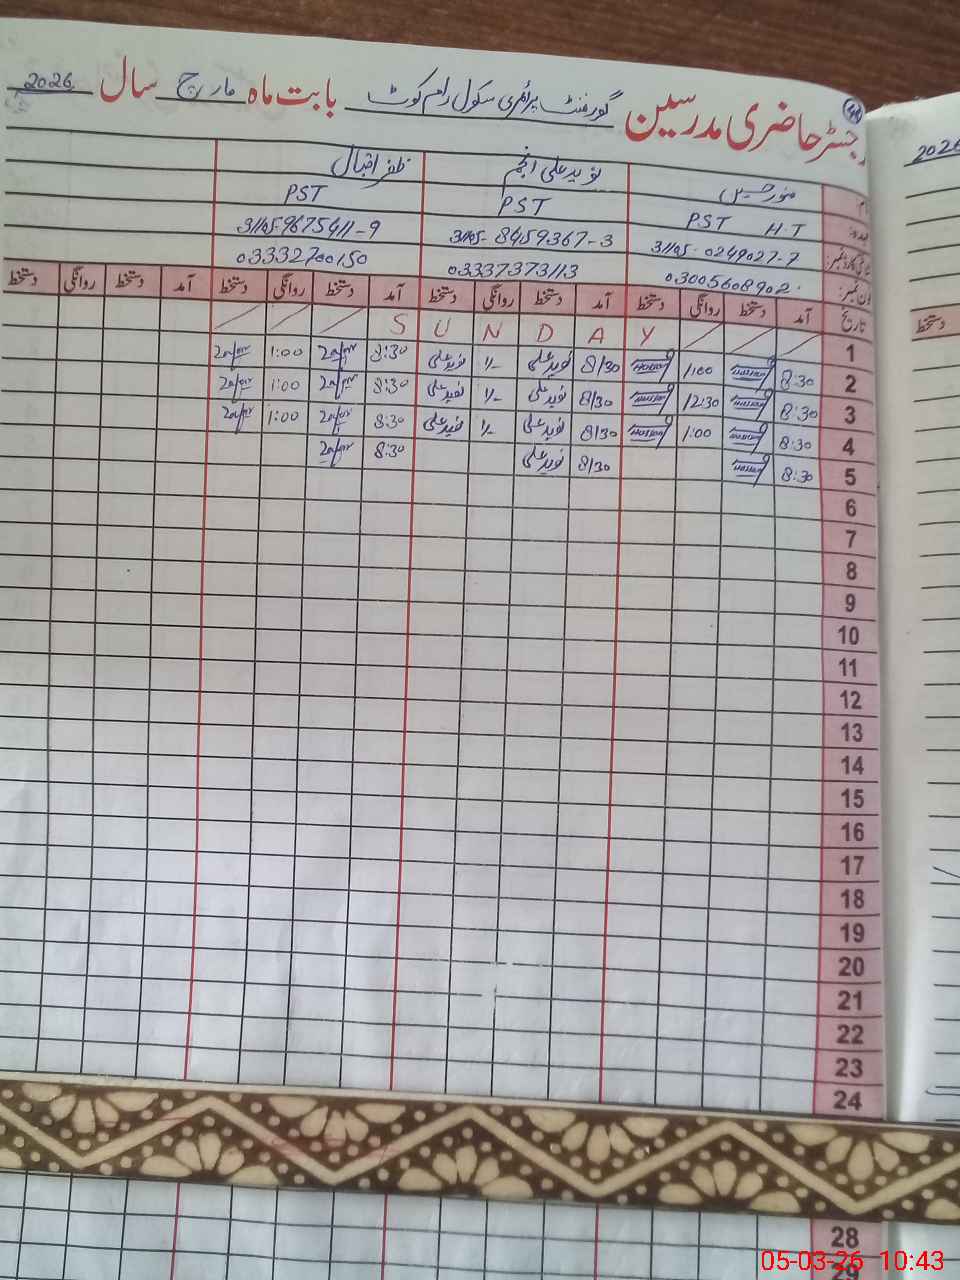 رجسٹر حاضری مدرسین گورنمنٹ پرائمری سکول رام کوٹ بابت ماہ مارچ سال 2026
2026
منور حسین نوید علی انجم ظفر اقبال
PST H.T PST PST
31105-0249027-7 31105-8459367-3 31105-9675411-9
03005608902 03337373113 03332700150
تاریخ آمد دستخط روانگی دستخط آمد دستخط روانگی دستخط آمد دستخط روانگی دستخط آمد دستخط روانگی دستخط
دستخط
1 S U N D A Y
2 8:30 1:00 8/30 نوید علی 1/- نوید علی 8:30 1:00
3 8:30 12:30 8/30 نوید علی 1/- نوید علی 8:30 1:00
4 8:30 1:00 8/30 نوید علی 1/- نوید علی 8:30 1:00
5 8:30 8/30 نوید علی 8:30
6
7
8
9
10
11
12
13
14
15
16
17
18
19
20
21
22
23
24
28
29
05-03-26 10:43